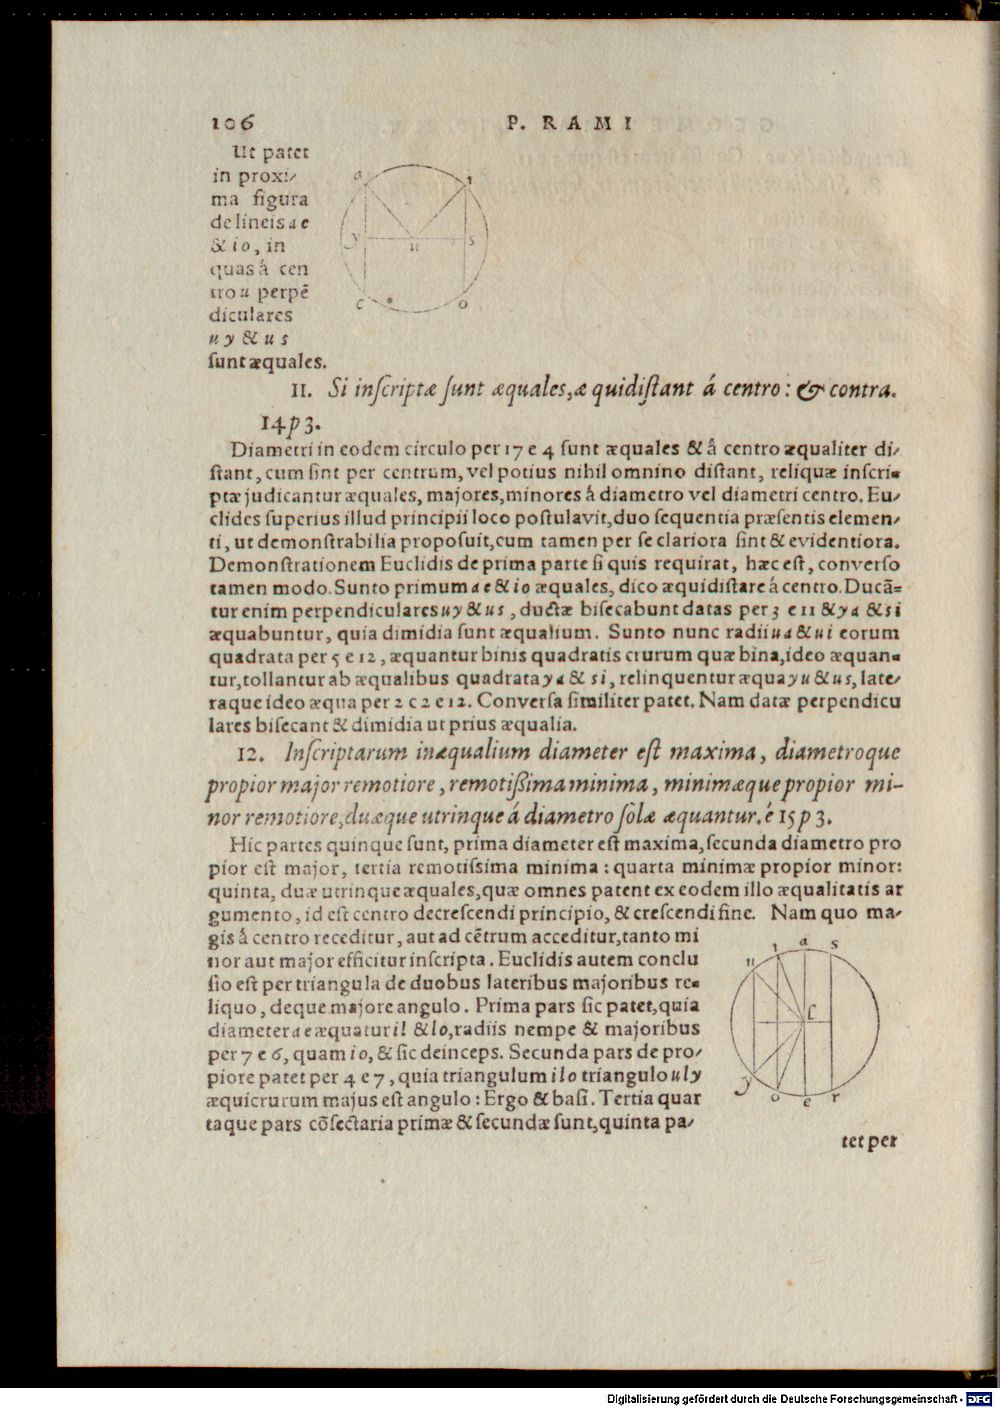 106 P. RAMI
Ut patet
in proxi-
ma figura
de lineis a e
& i o, in
quas á cen
tro u perpē
diculares
u y & u s
sunt æquales.
a i
y u s
c o
11. Si inſcriptæ ſunt æquales, æquidiſtant á centro: & contra.
14 p 3.
Diametri in eodem circulo per 17 e 4 ſunt æquales & á centro æqualiter di-
ſtant, cum ſint per centrum, vel potius nihil omnino diſtant, reliquæ inſcri-
ptæ judicantur æquales, majores, minores á diametro vel diametri centro. Eu-
clides ſuperius illud principii loco poſtulavit, duo ſequentia præſentis elemen-
ti, ut demonſtrabilia propoſuit, cum tamen per ſe clariora ſint & evidentiora.
Demonſtrationem Euclidis de prima parte ſi quis requirat, hæc eſt, converſo
tamen modo. Sunto primum a e & i o æquales, dico æquidiſtare á centro. Ducā-
tur enim perpendiculares u y & u s, ductæ biſecabunt datas per 3 e 11 & y a & s i
æquabuntur, quia dimidia ſunt æqualium. Sunto nunc radii u a & u i eorum
quadrata per 5 e 12, æquantur binis quadratis crurum quæ bina, ideo æquan-
tur, tollantur ab æqualibus quadrata y a & s i, relinquentur æqua y u & u s, late-
raque ideo æqua per 2 c 2 e 12. Converſa ſimiliter patet. Nam datæ perpendicu
lares biſecant & dimidia ut prius æqualia.
12. Inſcriptarum inæqualium diameter eſt maxima, diametroque
propior major remotiore, remotiſſima minima, minimæque propior mi-
nor remotiore, duæque utrinque á diametro ſolæ æquantur. é 15 p 3.
Hic partes quinque ſunt, prima diameter eſt maxima, ſecunda diametro pro
pior eſt major, tertia remotiſſima minima: quarta minimæ propior minor:
quinta, duæ utrinque æquales, quæ omnes patent ex eodem illo æqualitatis ar
gumento, id eſt centro decreſcendi principio, & creſcendi fine. Nam quo ma-
gis á centro receditur, aut ad cētrum acceditur, tanto mi
nor aut major efficitur inſcripta. Euclidis autem conclu
ſio eſt per triangula de duobus lateribus majoribus re-
liquo, deque majore angulo. Prima pars ſic patet, quia
diameter a e æquatur i l & l o, radiis nempe & majoribus
per 7 e 6, quam i o, & ſic deinceps. Secunda pars de pro-
piore patet per 4 e 7, quia triangulum i l o triangulo u l y
æquicrurum majus eſt angulo: Ergo & baſi. Tertia quar
taque pars cōſectaria primæ & ſecundæ ſunt, quinta pa-
u i a s
l
y o e r
tet per
Digitalisierung gefördert durch die Deutsche Forschungsgemeinschaft - DFG